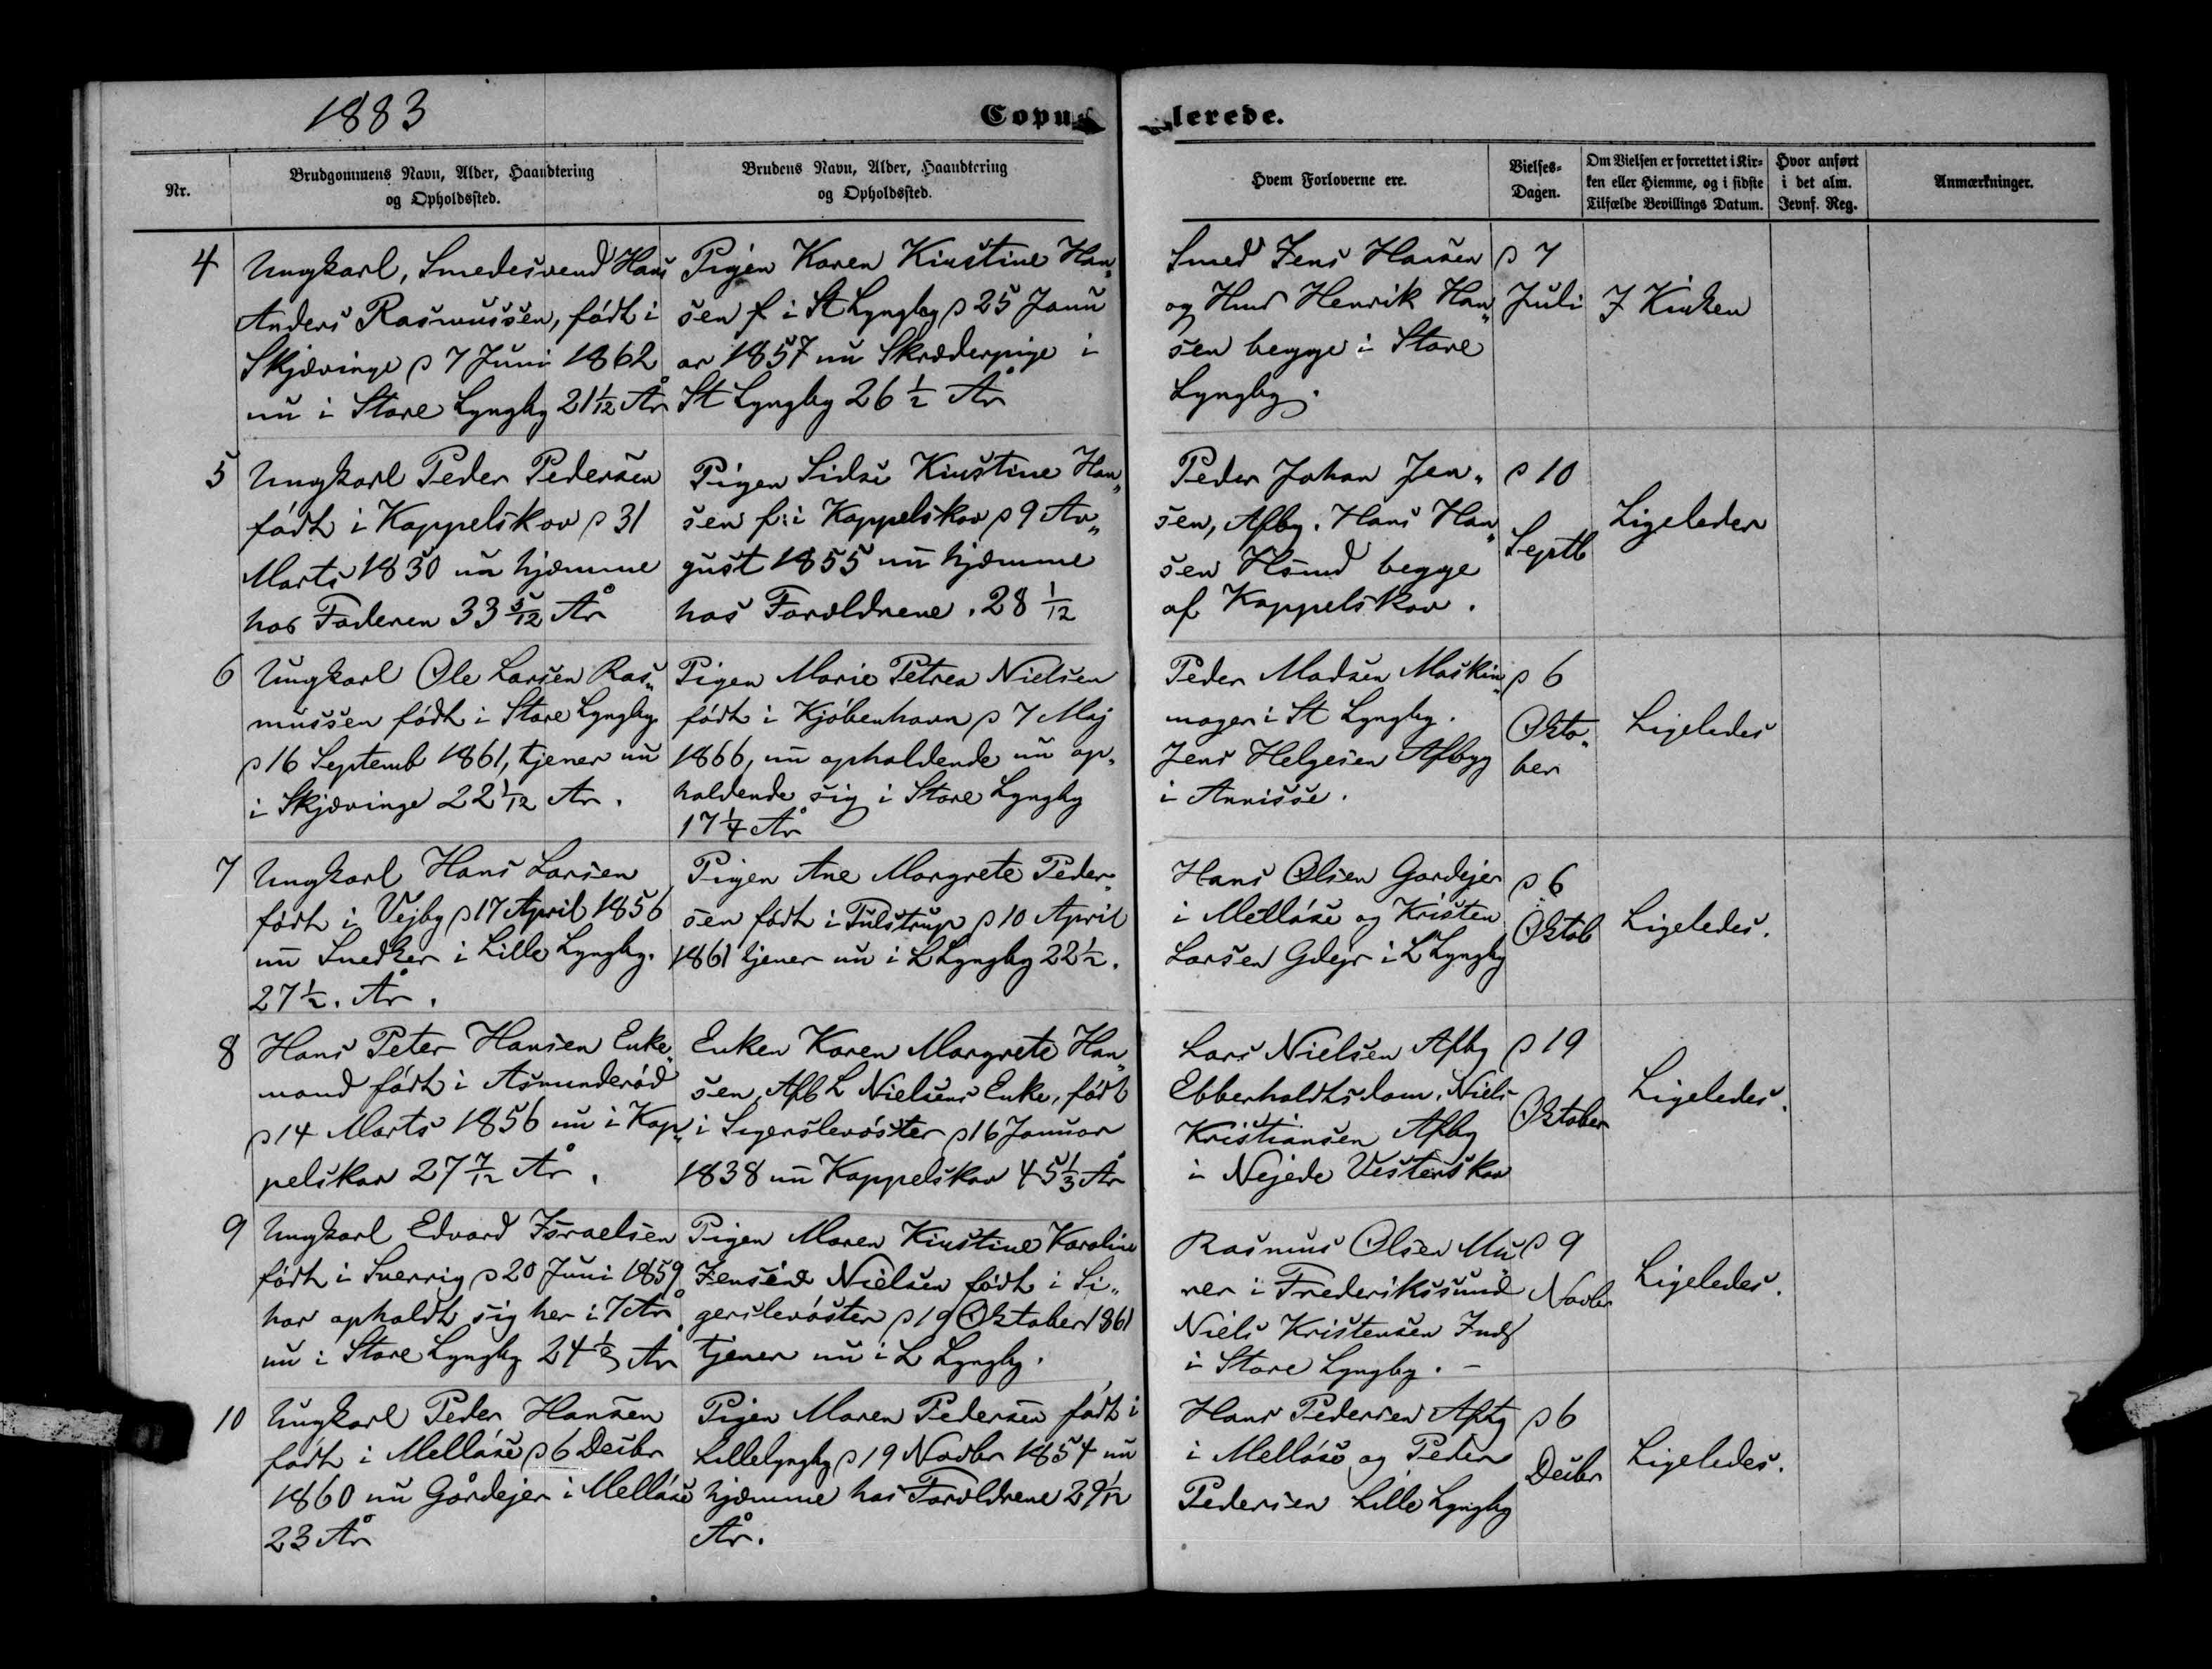 1883
Copulerede.
Nr.
Brudgommens Navn, Alder, Haandtering
og Opholdssted.
Brudens Navn, Alder, Haandtering
og Opholdssted.
Hvem Forloverne ere.
Vielses-
Dagen.
Om Vielsen er forrettet i Kir-
ken eller Hiemme, og i sidste
Tilfælde Bevillings Datum.
Hvor anført
i det alm.
Jevnf. Reg.
Anmærkninger.
4
Ungkarl, Smedesvend Hans
Anders Rasmussen, født i
Skjævinge p 7 Juni 1862
nu i Store Lyngby 21 1/12 År
Pigen Karen Kirstine Han„
sen f i St Lyngby p 25 Janu
ar 1857 nu Skræderpige i
St Lyngby 26 1/2 År
Smed Jens Hansen
og Hmd Henrik Han„
sen begge i Store
Lyngby.
p 7
Juli
I Kirken
5
Ungkarl Peder Pedersen
født i Kappelskov p 31
Marts 1850 nu hjemme
hos Faderen 33 5/12 År
Pigen Sidse Kirstine Han„
sen f: i Kappelskov p 9 Au„
gust 1855 nu hjemme
hos Forældrene. 28 1/12
Peder Johan Jen„
sen, Afby. Hans Han„
sen Hsmd begge
af Kappelskov.
p 10
Septb
Ligeledes
6
Ungkarl Ole Larsen Ras„
mussen født i Store Lyngby
p 16 Septemb 1861, tjener nu
i Skjævinge 22 1/12 Ar.
Pigen Marie Petrea Nielsen
født i Kjöbenhavn p 7 Maj
1866, nu opholdende nu op„
holdende sig i Store Lyngby
17 1/4 År
Peder Madsen Maskin„
mager i St Lyngby.
Jens Helgesen Afbyg
i Annisse.
p 6
Okto„
ber
Ligeledes
7
Ungkarl Hans Larsen
født i Vejby p 17 April 1856
nu Snedker i Lille Lyngby.
27 1/2. År.
Pigen Ane Margrete Peder„
sen født i Tulstrup p 10 April
1861 tjener nu i L Lyngby 22 1/2.
Hans Olsen Gardejer
i Melløse og Kristen
Larsen Gdejr i L Lyngby
p 6
Oktob
Ligeledes.
8
Hans Peter Hansen Enke„
mand født i Asmunderød
p 14 Marts 1856 nu i Kap„
pelskov 27 7/12 År.
Enken Karen Margrete Han„
sen, Afb L Nielsens Enke, født
i Sigerslevöster p 16 Januar
1838 nu Kappelskov 45 1/3 År
Lars Nielsen Afby
Ebberholdtsdam. Niels
Kristiansen Afby
i Nejede Vesterskov
p 19
Oktober
Ligeledes.
9
Ungkarl Edvard Israelsen
født i Sverrig p 20 Juni 1859
har opholdt sig her i 7 År
nu i Store Lyngby 24 1/3 År
Pigen Maren Kirstine Karoline
Nielsen født i Si„
gerslevöster p 19 Oktober 1861
tjener nu i L Lyngby.
Rasmus Olsen Mu„
rer i Frederikssund
Niels Kristensen Inds
i Store Lyngby. –
p 9
Novbr
Ligeledes.
10
Ungkarl Peder Hansen
født i Melløse p 6 Decbr
1860 nu Gårdejer i Melløse
23 År
Pigen Maren Pedersen født i
Lillelyngby p 19 Novbr 1854 nu
hjemme hos Forældrene 29 1/12
År.
Hans Pedersen Afby
i Melløse og Peder
Pedersen Lille Lyngby
p 6
Decbr
Ligeledes.